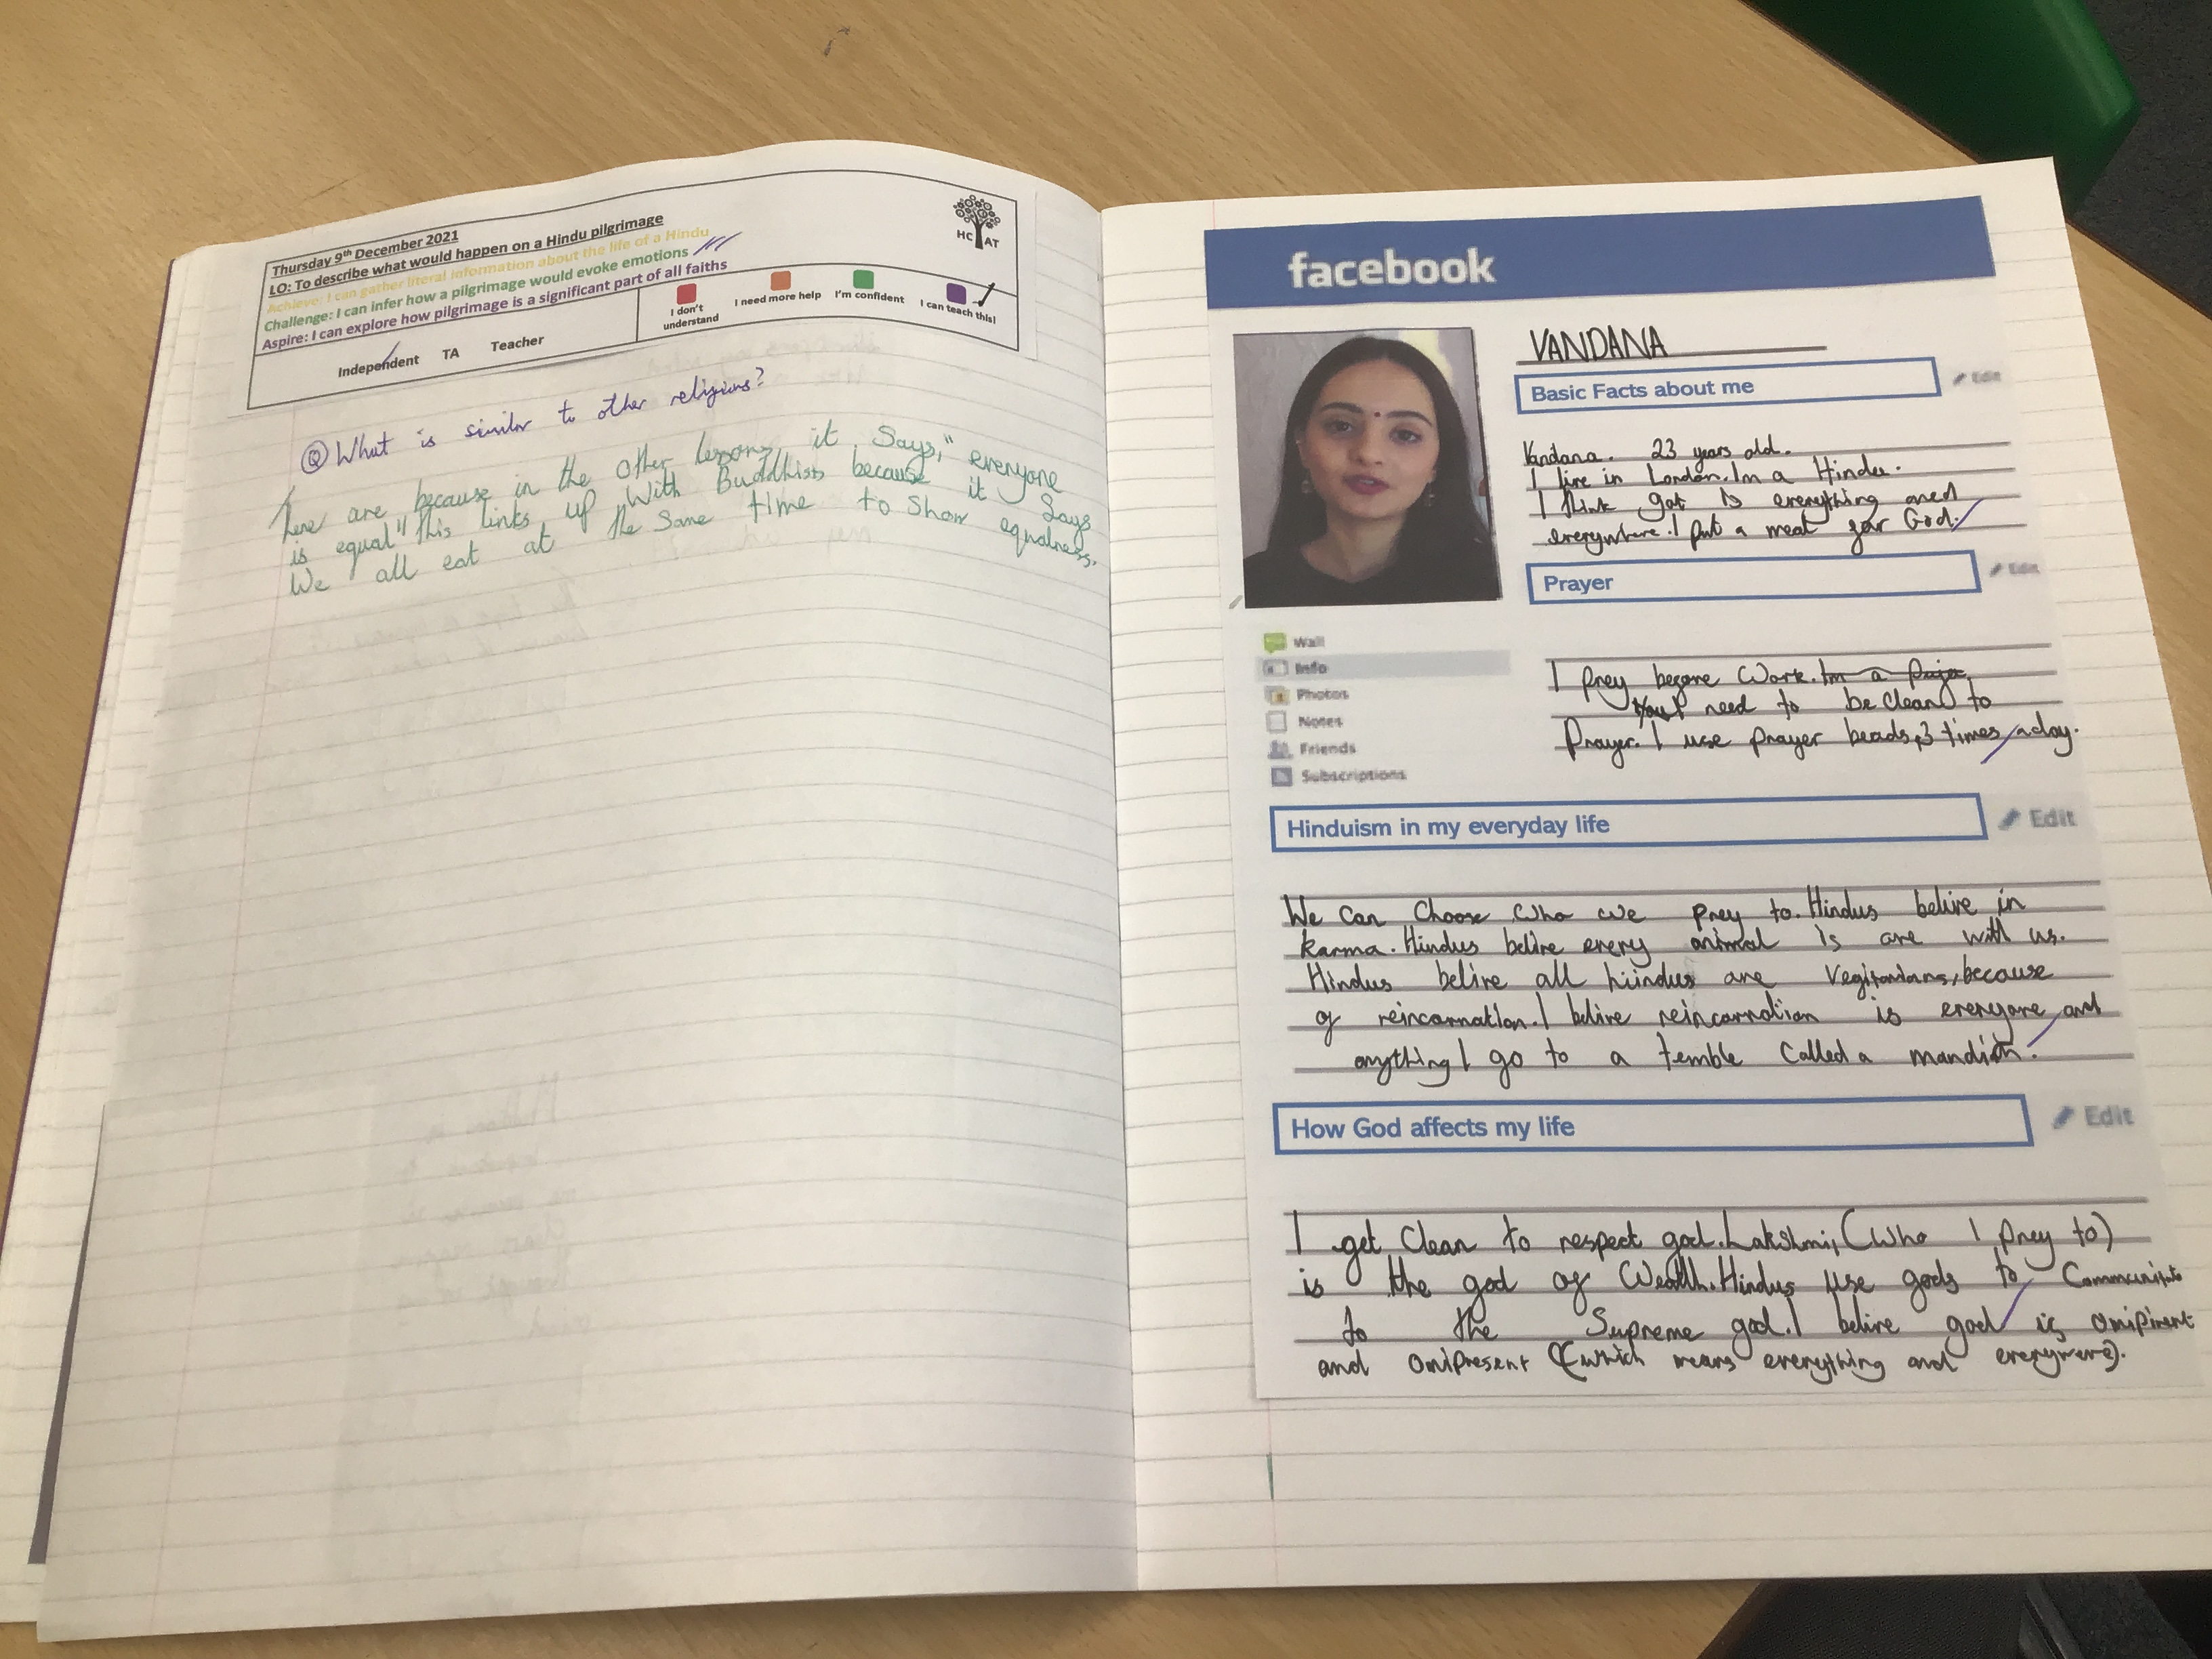 Thursday 9th December 2021
LO: To describe what would happen on a Hindu pilgrimage
Achieve: I can gather literal information about the life of a Hindu
Challenge: I can infer how a pilgrimage would evoke emotions
Aspire: I can explore how pilgrimage is a significant part of all faiths
HC AT
I don't understand
I need more help
I'm confident
I can teach this!
Independent TA Teacher
Q What is similar to other religions?
There are because in the other lesson, it says," everyone
is equal" this links up with Buddhists because it says
We all eat at the same time to show equalness.
facebook
VANDANA
Basic Facts about me
Edit
Vandana. 23 years old.
I live in London. Im a Hindu.
I think got is everything and
everywhere. I put a meat for God.
Prayer
Edit
Wall
Info
Photos
Notes
Friends
Subscriptions
I prey before Work. Im a Puja
need to be clean to
Prayer. I use prayer beads, 3 times a day.
Hinduism in my everyday life
Edit
We can choose who we prey to. Hindus belive in
karma. Hindus belive every animal is are with us.
Hindus belive all hindus are because
of reincarnation. I belive reincarnation is everyone and
anything I go to a temble called a
How God affects my life
Edit
I get clean to respect god. Lakshmi, (who I prey to)
is the god of Wealth. Hindus use gods to
to the Supreme god. I belive god is
and omipresent (which means everything and